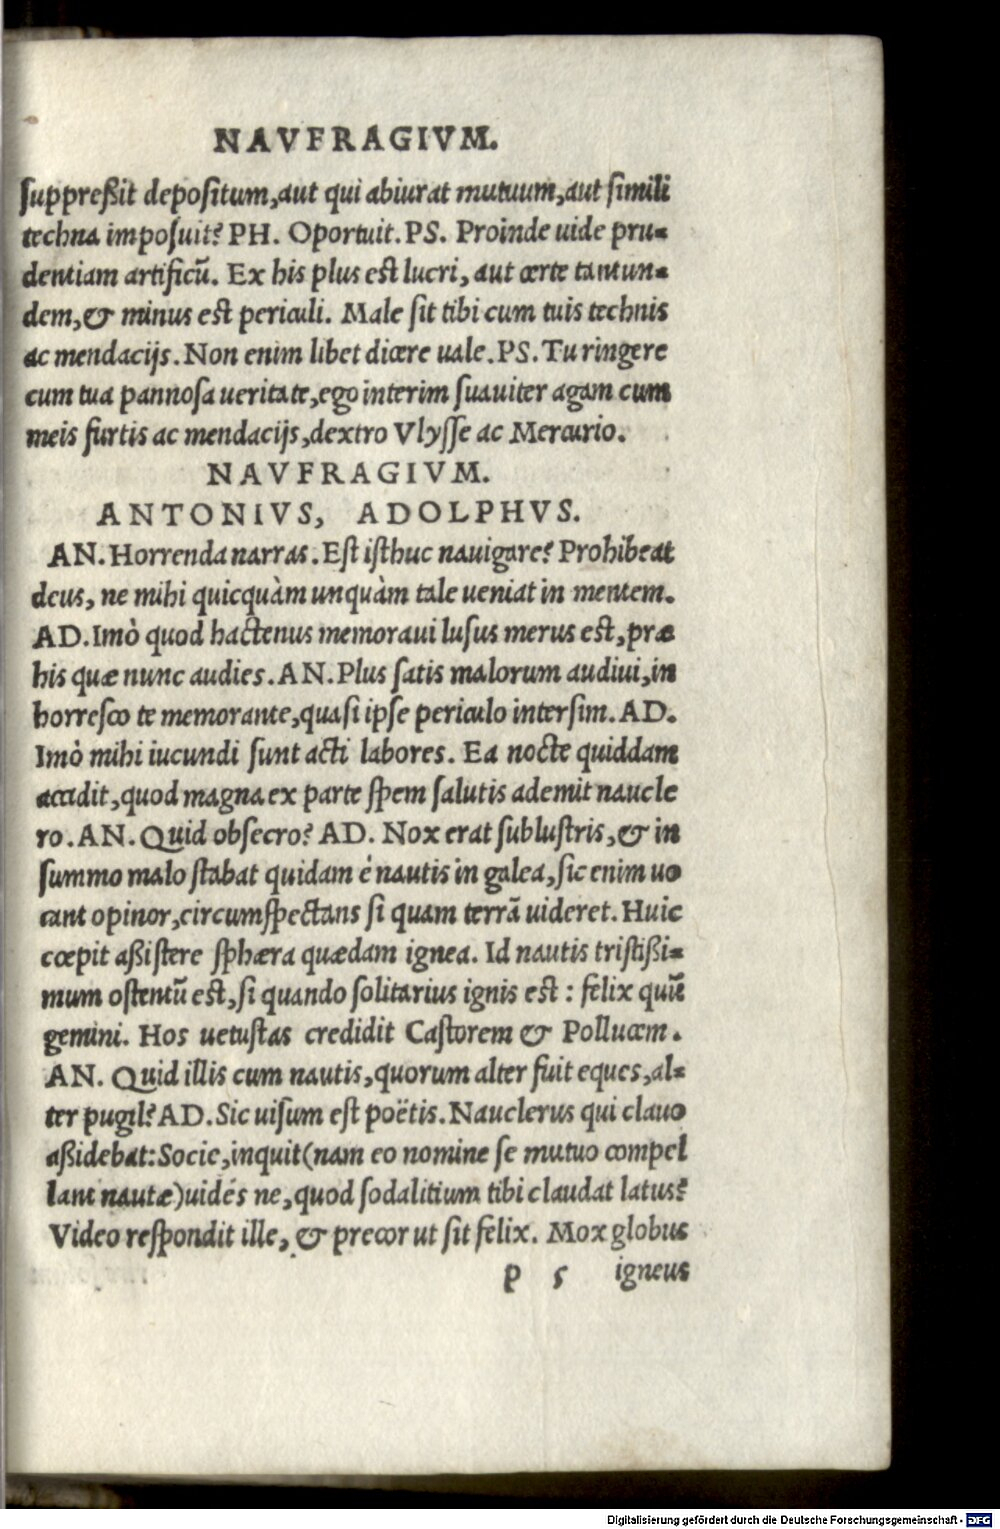 NAVFRAGIVM.
ſuppreßit depoſitum,aut qui abiurat mutuum,aut ſimili
techna impoſuit? PH. Oportuit. PS. Proinde uide pru-
dentiam artificū. Ex his plus eſt lucri, aut certe tantun-
dem,& minus eſt periculi. Male ſit tibi cum tuis technis
ac mendacijs. Non enim libet dicere uale. PS. Tu ringere
cum tua pannoſa ueritate,ego interim ſuauiter agam cum
meis furtis ac mendacijs,dextro Vlyſſe ac Mercurio.
NAVFRAGIVM.
ANTONIVS, ADOLPHVS.
AN. Horrenda narras. Eſt iſthuc nauigare? Prohibeat
deus, ne mihi quicquàm unquàm tale ueniat in mentem.
AD. Imò quod hactenus memoraui luſus merus eſt, præ
his quæ nunc audies. AN. Plus ſatis malorum audiui,in
horreſco te memorante,quaſi ipſe periculo interſim. AD.
Imò mihi iucundi ſunt acti labores. Ea nocte quiddam
accidit,quod magna ex parte ſpem ſalutis ademit naucle
ro. AN. Quid obſecro? AD. Nox erat ſubluſtris,& in
ſummo malo ſtabat quidam è nautis in galea,ſic enim uo
cant opinor,circumſpectans ſi quam terrā uideret. Huic
cœpit aßiſtere ſphæra quædam ignea. Id nautis triſtißi-
mum oſtentū eſt,ſi quando ſolitarius ignis eſt: felix quū
gemini. Hos uetuſtas credidit Caſtorem & Pollucem.
AN. Quid illis cum nautis,quorum alter fuit eques,al-
ter pugil? AD. Sic uiſum eſt poëtis. Nauclerus qui clauo
aßidebat: Socie,inquit(nam eo nomine ſe mutuo compel
lant nautæ)uides ne,quod ſodalitium tibi claudat latus?
Video reſpondit ille, & precor ut ſit felix. Mox globus
p 5 igneus
Digitalisierung gefördert durch die Deutsche Forschungsgemeinschaft - DFG